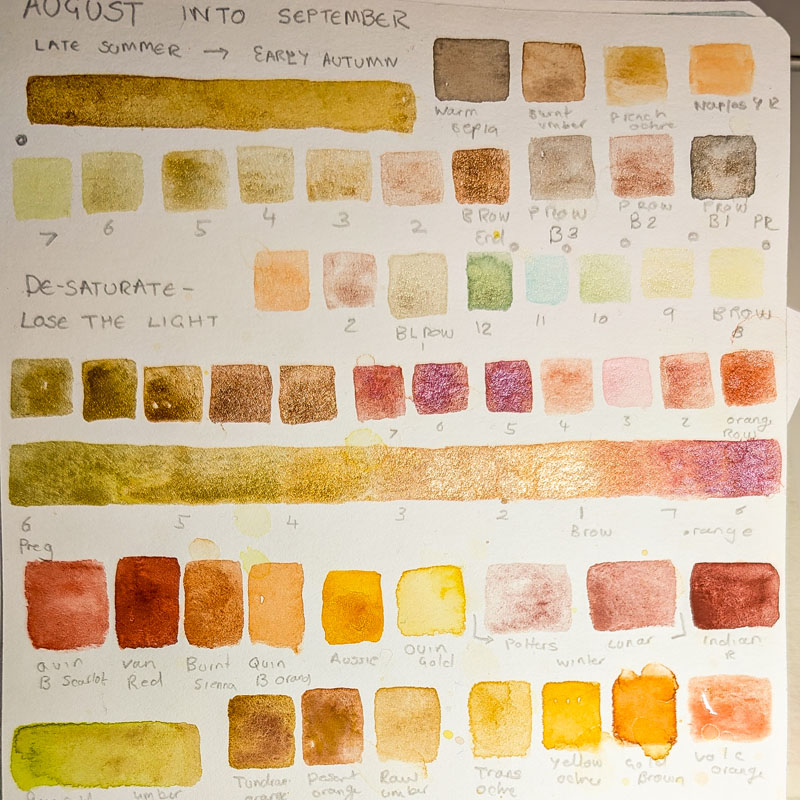 AUGUST INTO SEPTEMBER
LATE SUMMER → EARLY AUTUMN
Warm Sepia
Burnt umber
French ochre
Naples Y R
7 6 5 4 3 2
B ROW End
P ROW B3
P ROW B2
P ROW B1
PR
DE-SATURATE-
LOSE THE LIGHT
2
BL ROW 1
12 11 10 9
B ROW 8
7 6 5 4 3 2
orange Row
6 5 4 3 2 1 7 6
Preg
Brow
orange
Quin B Scarlet
Van Red
Burnt Sienna
Quin B orang
Aussie
Quin Gold
Potters
Lunar
winter
Indian R
umber
Tundra orange
Desert orange
Raw umber
Trans ochre
Yellow ochre
Gold Brown
orange